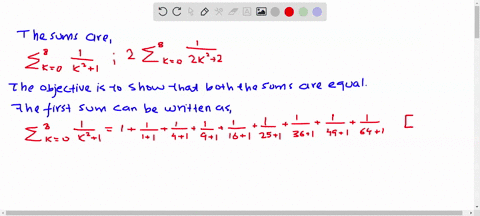 The sums are,
∑_{K=0}^{8} 1/(K²+1) ; 2 ∑_{K=0}^{8} 1/(2K²+2)
The objective is to show that both the sums are equal.
The first sum can be written as,
∑_{K=0}^{8} 1/(K²+1) = 1 + 1/(1+1) + 1/(4+1) + 1/(9+1) + 1/(16+1) + 1/(25+1) + 1/(36+1) + 1/(49+1) + 1/(64+1) [